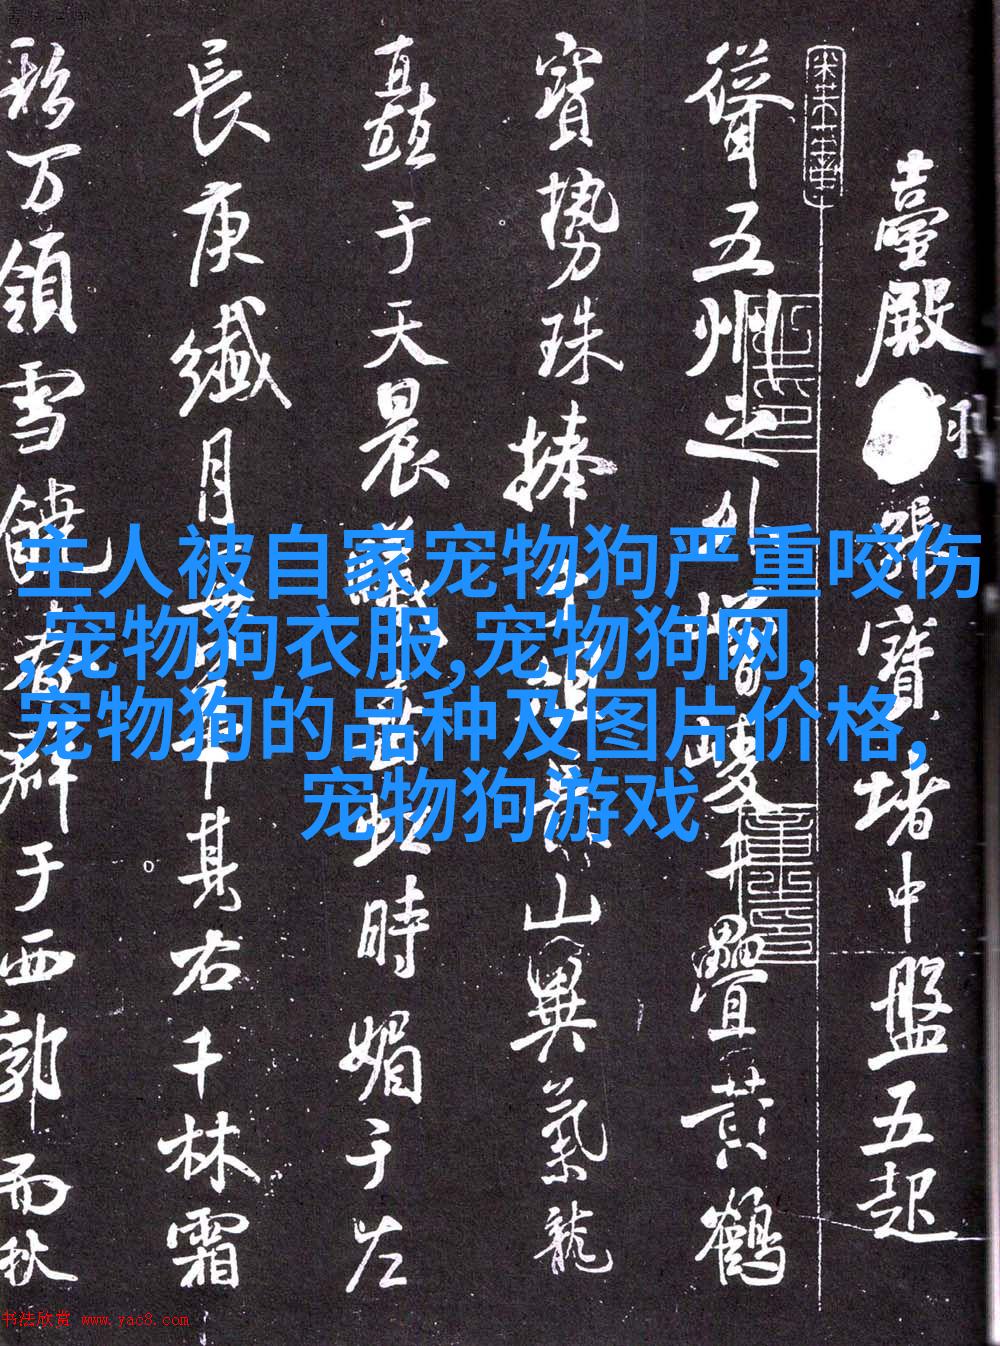 臺殿張寶堵中盤五起
聳五州之外增崚平疊黃鶴
寶勢珠捧山異氣龍
矗于天晨時媚于左
長庚纖月其右千林霜
万領雪饒群于西郭而秋
主人被自家宠物狗严重咬伤
,宠物狗衣服,宠物狗网,
宠物狗的品种及图片价格,
宠物狗游戏
书法欣赏 www.yac8.com